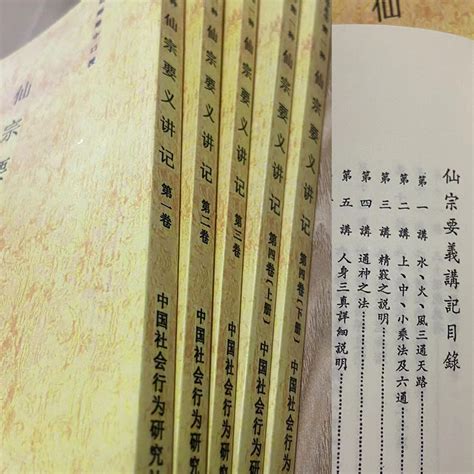 仙宗要
仙宗要义讲记 第一卷 中国社会行为研究
仙宗要义讲记 第二卷 中国社会行为研究
仙宗要义讲记 第三卷 中国社会行为研
仙宗要义讲记 第四卷（上册） 中国社会行为
仙宗要义讲记 第四卷（下册） 中国社会行为
仙
仙宗要義講記目錄
第一講 水、火、風三通天路
第二講 上、中、小乘法及六通
第三講 精竅之説明
第四講 通神之法
第五講 人身三真詳細説明